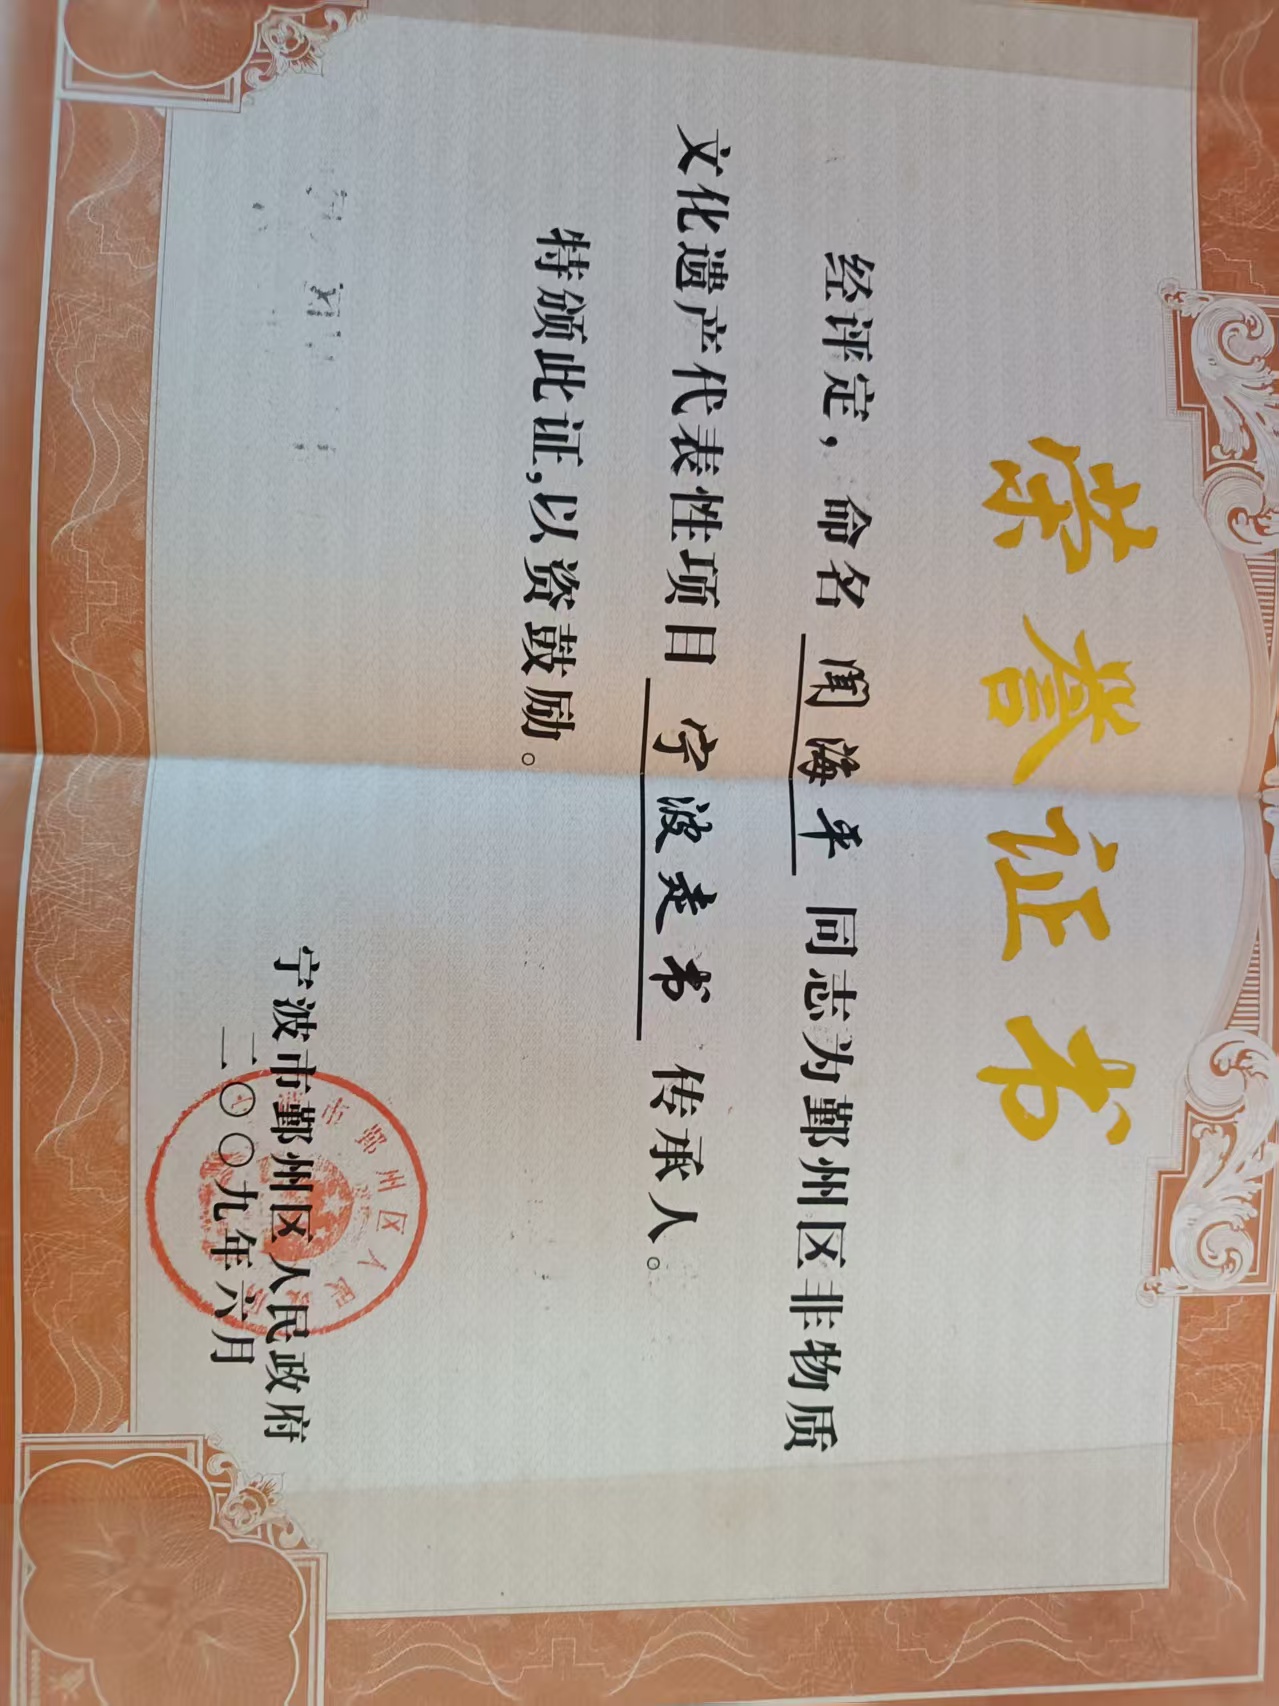 荣誉证书
经评定，命名 闻海平 同志为鄞州区非物质
文化遗产代表性项目 宁波走书 传承人。
特颁此证,以资鼓励。
宁波市鄞州区人民政府
二〇〇九年六月